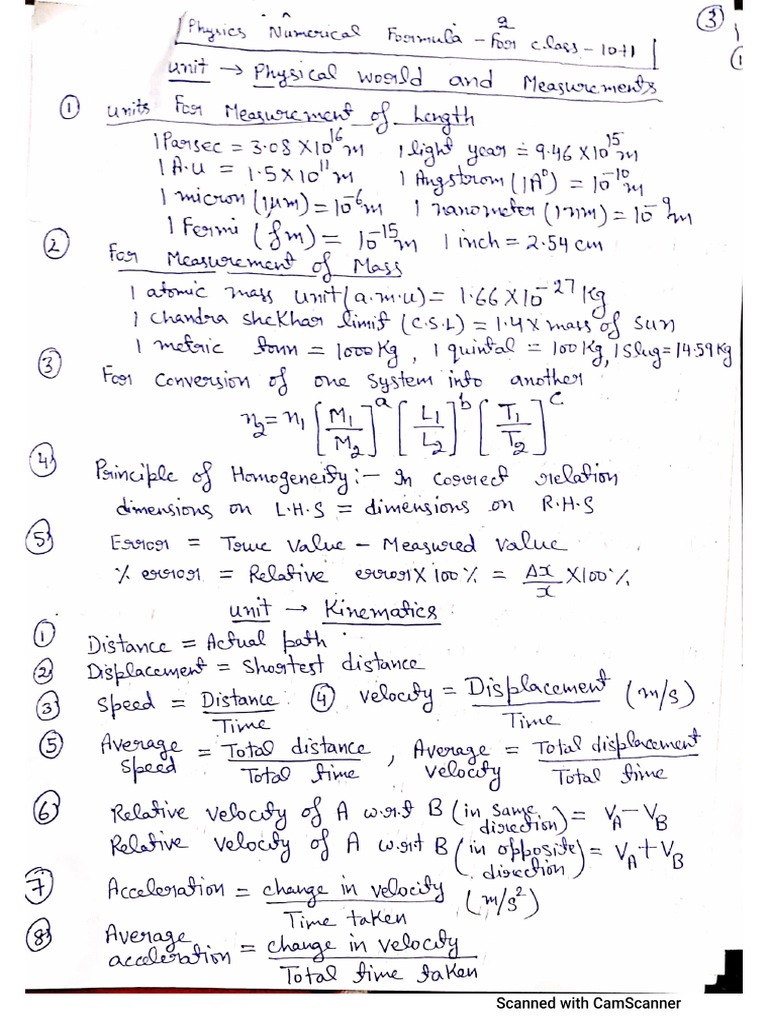 ③
Physics Numerical Formula - For class - 10+1
unit → Physical world and Measurements
① units For Measurement of Length
1 Parsec = 3.08 × 10¹⁶ m 1 light year = 9.46 × 10¹⁵ m
1 A.U = 1.5 × 10¹¹ m 1 Angstrom (1A⁰) = 10⁻¹⁰ m
1 micron (1μm) = 10⁻⁶ m 1 nanometer (1nm) = 10⁻⁹ m
1 Fermi (fm) = 10⁻¹⁵ m 1 inch = 2.54 cm
② For Measurement of Mass
1 atomic mass unit (a.m.u) = 1.66 × 10⁻²⁷ kg
1 Chandra shekhar limit (C.S.L) = 1.4 × mass of sun
1 metric tonn = 1000 Kg, 1 quintal = 100 Kg, 1 Slug = 14.59 Kg
③ For Conversion of one system into another
n₂ = n₁ [M₁/M₂]ᵃ [L₁/L₂]ᵇ [T₁/T₂]ᶜ
④ Principle of Homogeneity:- In correct relation
dimensions on L.H.S = dimensions on R.H.S
⑤ Error = True Value - Measured value
% error = Relative error × 100% = Δx/x × 100%
unit → Kinematics
① Distance = Actual path
② Displacement = Shortest distance
③ Speed = Distance/Time ④ Velocity = Displacement/Time (m/s)
⑤ Average speed = Total distance/Total time, Average velocity = Total displacement/Total time
⑥ Relative velocity of A w.r.t B (in same direction) = V_A - V_B
Relative velocity of A w.r.t B (in opposite direction) = V_A + V_B
⑦ Acceleration = change in velocity/Time taken (m/s²)
⑧ Average acceleration = change in velocity/Total time taken
Scanned with CamScanner